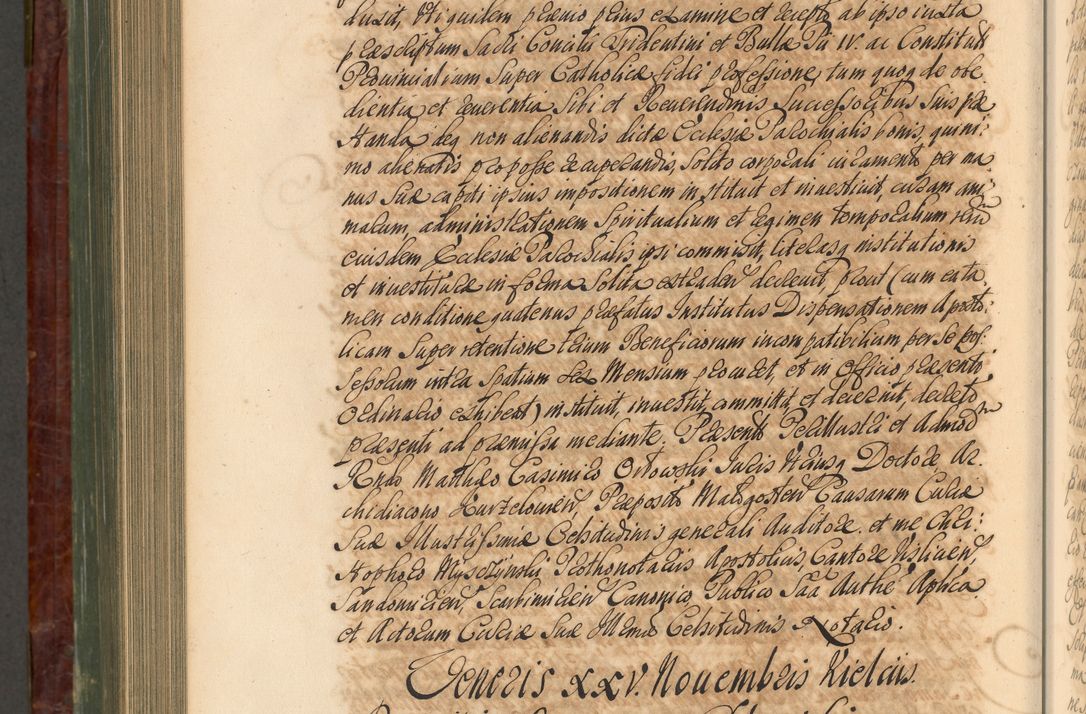 duxit, Et iquidem praevio prius examine et recepto ab ipso iuxta
praescriptum Sacri Concilii Tridentini et Bulla Pii IV. ac Constitut
Provincialium super Catholicae fidei professione, tum quoq de obe
dientia et reverentia Sibi et Reverendmis Successoribus suis prae
standa deq non alienandis dictae Ecclesiae Parochialis bonis, quini:
mo alienatis pro posse recuperandis, solito corporali iuramento per ma
nus suae capiti ipsius impositionem instituit et investivit, curam ani:
marum, administrationem Spiritualium et regimen temporalium
eiusdem Ecclesiae Parochialis ipsi commisit, literasq institutionis
et investiturae in forma solita extraden decrevit prout (cum ea ta
men conditione quatenus praefatus Institutus Dispensationem Aposto:
licam super retentione trium Beneficiorum incompatibilium per se pos:
sessorum intra spatium sex Mensium procuret, et in Officio praesenti
Ordinario exhibeat) instituit, investit, commisit, et decrevit, decreto
praesenti ad praemissa mediante. Praesente Perillustri et Admod
Rndo Matthaeo Casimiro Orłowski Juris Utriusq Doctore, Ar:
chidiacono Kurzelovien Praeposito Małogosten Causarum Curiae
Suae Illustrissimae Celsitudinis generali Auditore. et me Chri:
stophoro Myszzynski Prothonotario Apostolico, Cantore Kielcien,
Sandomirien, Scarbimirien Canonico Publico Sacra Authe Aplica
et Actorum Curiae Suae Illmae Celsitudinis Notario.
Veneris XXV. Novembris Kielciis.